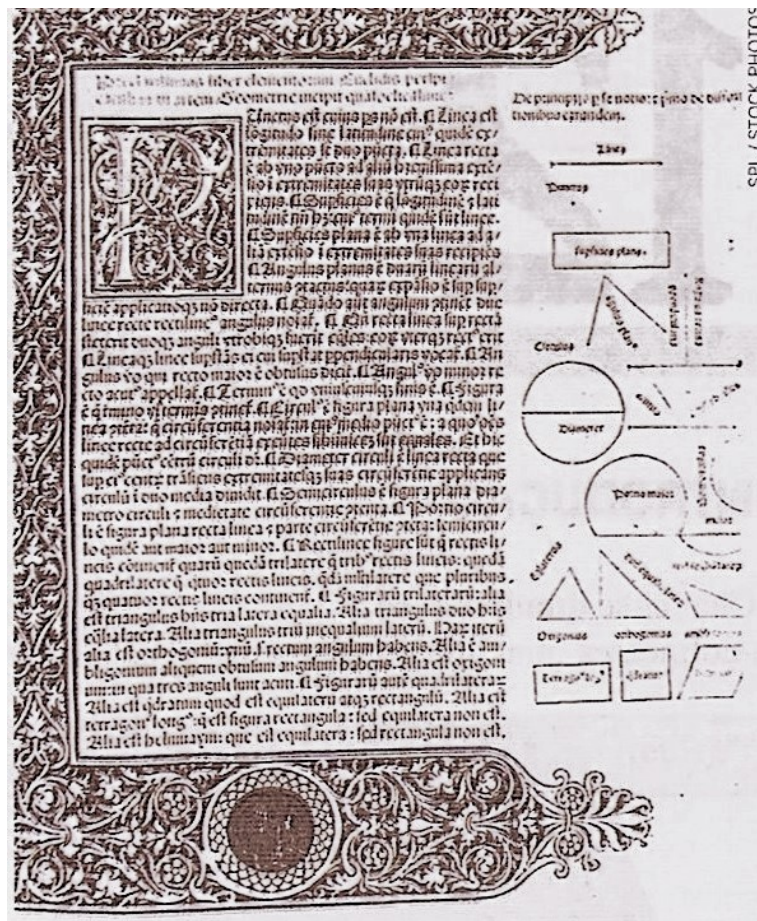 liber elementorum Euclidis perspi
in artem Geometrie incipit
Punctus est cuius ps nō est. ¶ Linea est
lōgitudo sine latitudine quidē ex-
tremitates sūt duo pūcta. ¶ Linea recta
ē ab vno pūcto ad aliū extē-
sio ī extremitates suas vtrūqꝫ eoꝝ reci
piens. ¶ Supficies ē q̄ lōgitudinē ⁊ lati
tudinē tm̄ hꝫ: termi quidē sūt linee.
¶ Supficies plana ē ab vna linea ad a-
liā extēsio ī extremitates suas recipiēs
¶ Angulus planus ē duarū linearū al-
ternus ꝯtactus: quaꝝ expāsio ē sup sup-
ficiē applicatioqꝫ nō directa. ¶ Quādo aūt angulum ꝯtinēt due
linee recte rectiline⁹ angulus noīat̄. ¶ Qn̄ recta linea sup rectā
steterit duoqꝫ anguli vtrobiqꝫ fuerit eq̄les: eoꝝ vterqꝫ rect⁹ erit
¶ Lineaqꝫ linee supstās ei cui supstat ppendicularis vocat̄. ¶ An
gulus vo qui recto maior ē obtusus dicit̄. ¶ Angul⁹ vo minor re
cto acut⁹ appellat̄. ¶ Termin⁹ ē qd̄ vniuscuiusqꝫ finis ē. ¶ Figura
ē q̄ tmino vl̓ termis ꝯtinet̄. ¶ Circul⁹ ē figura plana vna quidem li-
nea ꝯtēta: q̄ circūferentia noīat̄: in cui⁹ medio pūct⁹ ē: a quo oēs
linee recte ad circūferētiā exeūtes sibiinuicē sūt equales. Et hic
quidē pūct⁹ cētrū circuli dr̄. ¶ Diameter circuli ē linea recta que
sup ei⁹ centꝝ trāsiens extremitatesqꝫ suas circūferētie applicans
circulū ī duo media diuidit. ¶ Semicirculus ē figura plana dia-
metro circuli ⁊ medietate circūferentie ꝯtenta. ¶ Portio circu-
li ē figura plana recta linea ⁊ parte circūferētie ꝯtēta: semicircu-
lo quidē aut maior aut minor. ¶ Rectilinee figure sūt q̄ rectis li-
neis cōtinent̄ quarū quedā trilatere q̄ trib⁹ rectis lineis: quedā
quadrilatere q̄ qtuor rectis lineis. qdā mltilatere que pluribus
qꝫ quatuor rectis lineis continent̄. ¶ Figurarū trilaterarū: alia
est triangulus hn̄s tria latera equalia. Alia triangulus duo hn̄s
eq̄lia latera. Alia triangulus triū inequalium laterū. Haꝝ iterū
alia est orthogoniū: vnū .s. rectum angulum habens. Alia ē am-
bligonium aliquem obtusum angulum habens. Alia est oxigoni
um: in qua tres anguli sunt acuti. ¶ Figurarū autē quadrilateraꝝ
Alia est qdratum quod est equilaterū atqꝫ rectangulū. Alia est
tetragon⁹ long⁹: q̄ est figura rectangula: sed equilatera non est.
Alia est helmuaym: que est equilatera: sed rectangula non est.
De principijs p se notis: ⁊ pmo de diffini
tionibus earundem.
Linea
Punctus
Supficies plana
Circulus
Diameter
Portio maior
Oxigonius
orthogonius
SPL / STOCK PHOTOS